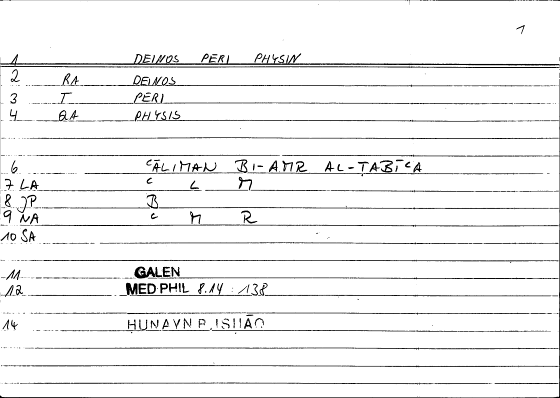 1
1 DEINOS PERI PHYSIN
2 RA DEINOS
3 T PERI
4 QA PHYSIS
6 ꜤĀLIMAN BI-AMR AL-TABĪꜤA
7 LA Ꜥ L M
8 JP B
9 NA Ꜥ M R
10 SA
11 GALEN
12 MED PHIL 8.14 : 138
14 HUNAYN B. ISHĀQ